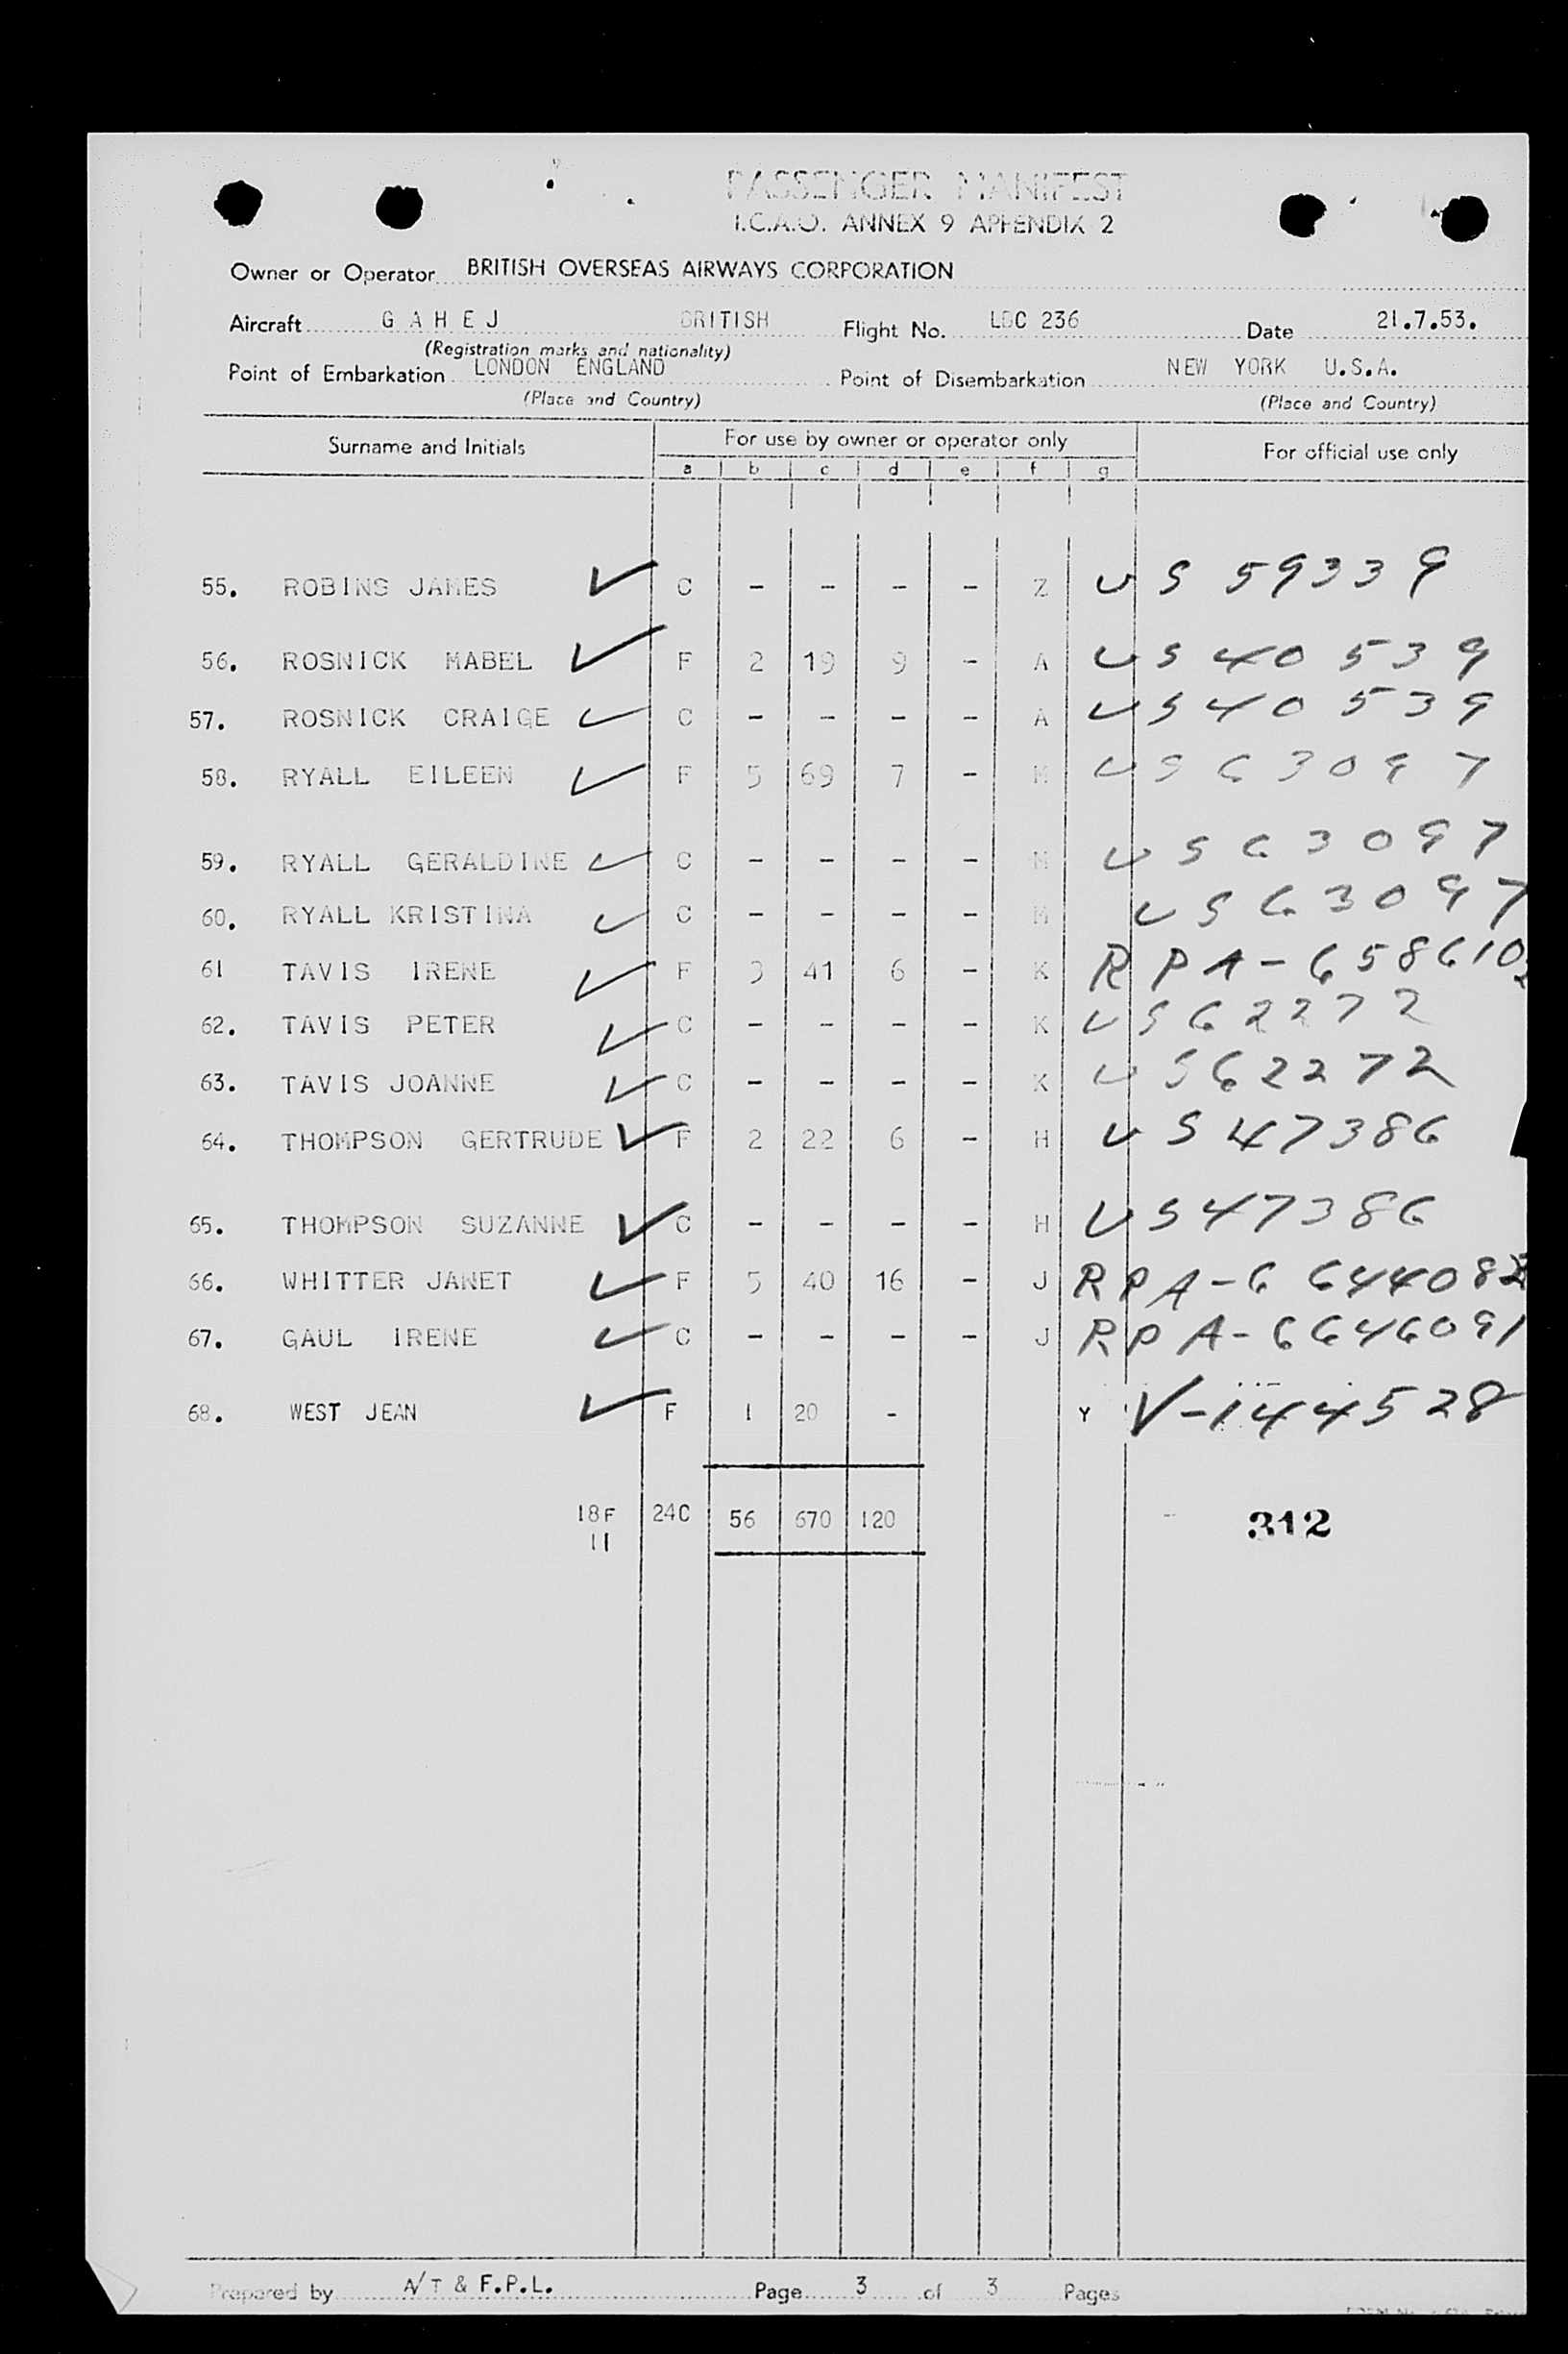 PASSENGER MANIFEST
I.C.A.O. ANNEX 9 APPENDIX 2
Owner or Operator BRITISH OVERSEAS AIRWAYS CORPORATION
Aircraft G A H E J BRITISH Flight No. LDC 236 Date 21.7.53.
(Registration marks and nationality)
Point of Embarkation LONDON ENGLAND Point of Disembarkation NEW YORK U.S.A.
(Place and Country) (Place and Country)
Surname and Initials For use by owner or operator only For official use only
a b c d e f g
55. ROBINS JAMES ✓ C - - - - Z US 59339
56. ROSNICK MABEL ✓ F 2 19 9 - A US 40539
57. ROSNICK CRAIGE ✓ C - - - - A US 40539
58. RYALL EILEEN ✓ F 5 69 7 - M US 63097
59. RYALL GERALDINE ✓ C - - - - M US 63097
60. RYALL KRISTINA ✓ C - - - - M US 63097
61 TAVIS IRENE ✓ F 3 41 6 - K RPA-658610
62. TAVIS PETER ✓ C - - - - K US 62272
63. TAVIS JOANNE ✓ C - - - - K US 62272
64. THOMPSON GERTRUDE ✓ F 2 22 6 - H US 47386
65. THOMPSON SUZANNE ✓ C - - - - H US 47386
66. WHITTER JANET ✓ F 5 40 16 - J RPA-6644082
67. GAUL IRENE ✓ C - - - - J RPA-6646091
68. WEST JEAN ✓ F 1 20 - Y V-144528
18F 24C 56 670 120 312
11
Prepared by N/T & F.P.L. Page 3 of 3 Pages